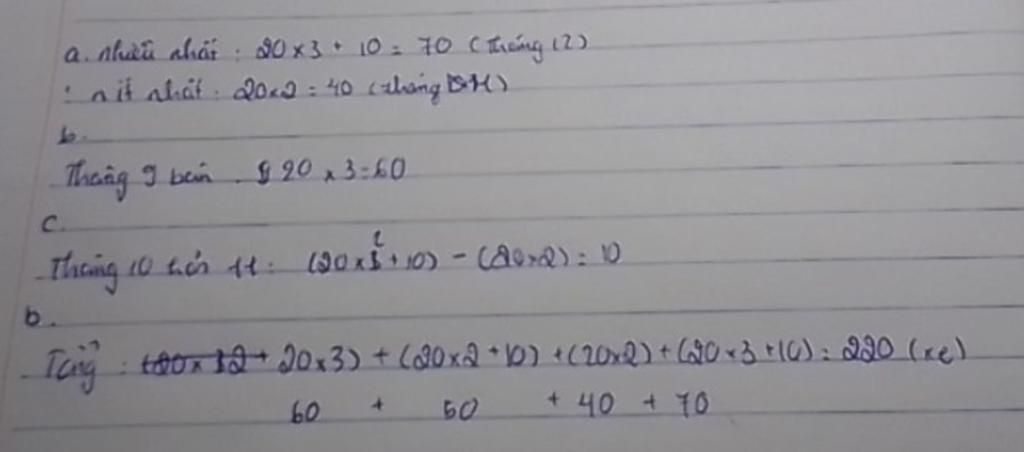 a. nhiều nhất : 20 x 3 + 10 = 70 (Tháng 12)
ít nhất : 20 x 2 = 40 (tháng 11)
b.
Tháng 9 bán : 20 x 3 = 60
c.
Tháng 10 hơn 11 : (20 x 2 + 10) - (20 x 2) = 10
b.
Tổng : 20 x 3) + (20 x 2 + 10) + (20 x 2) + (20 x 3 + 10) = 220 (xe)
60 + 50 + 40 + 70